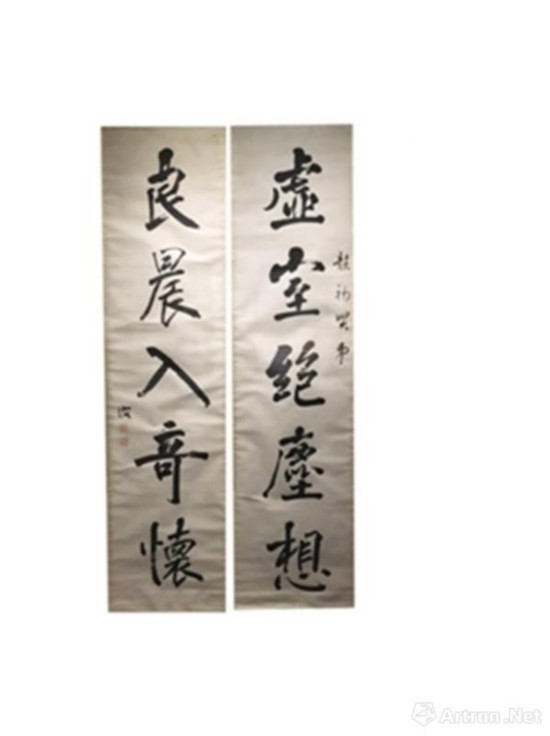 虚室絶塵想
良晨入奇懷
Artron.Net